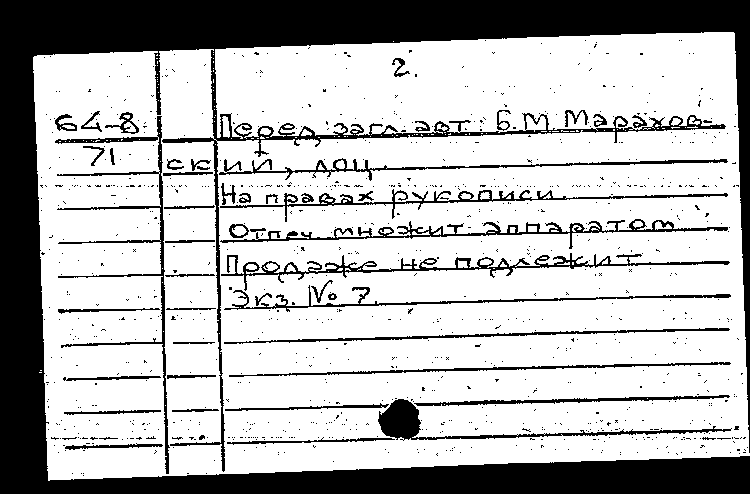 2.
64-8 Перед загл. авт.: Б.М. Марахов-
71 ский, доц.
На правах рукописи.
Отпеч. множит. аппаратом
Продаже не подлежит
Экз. № 7.